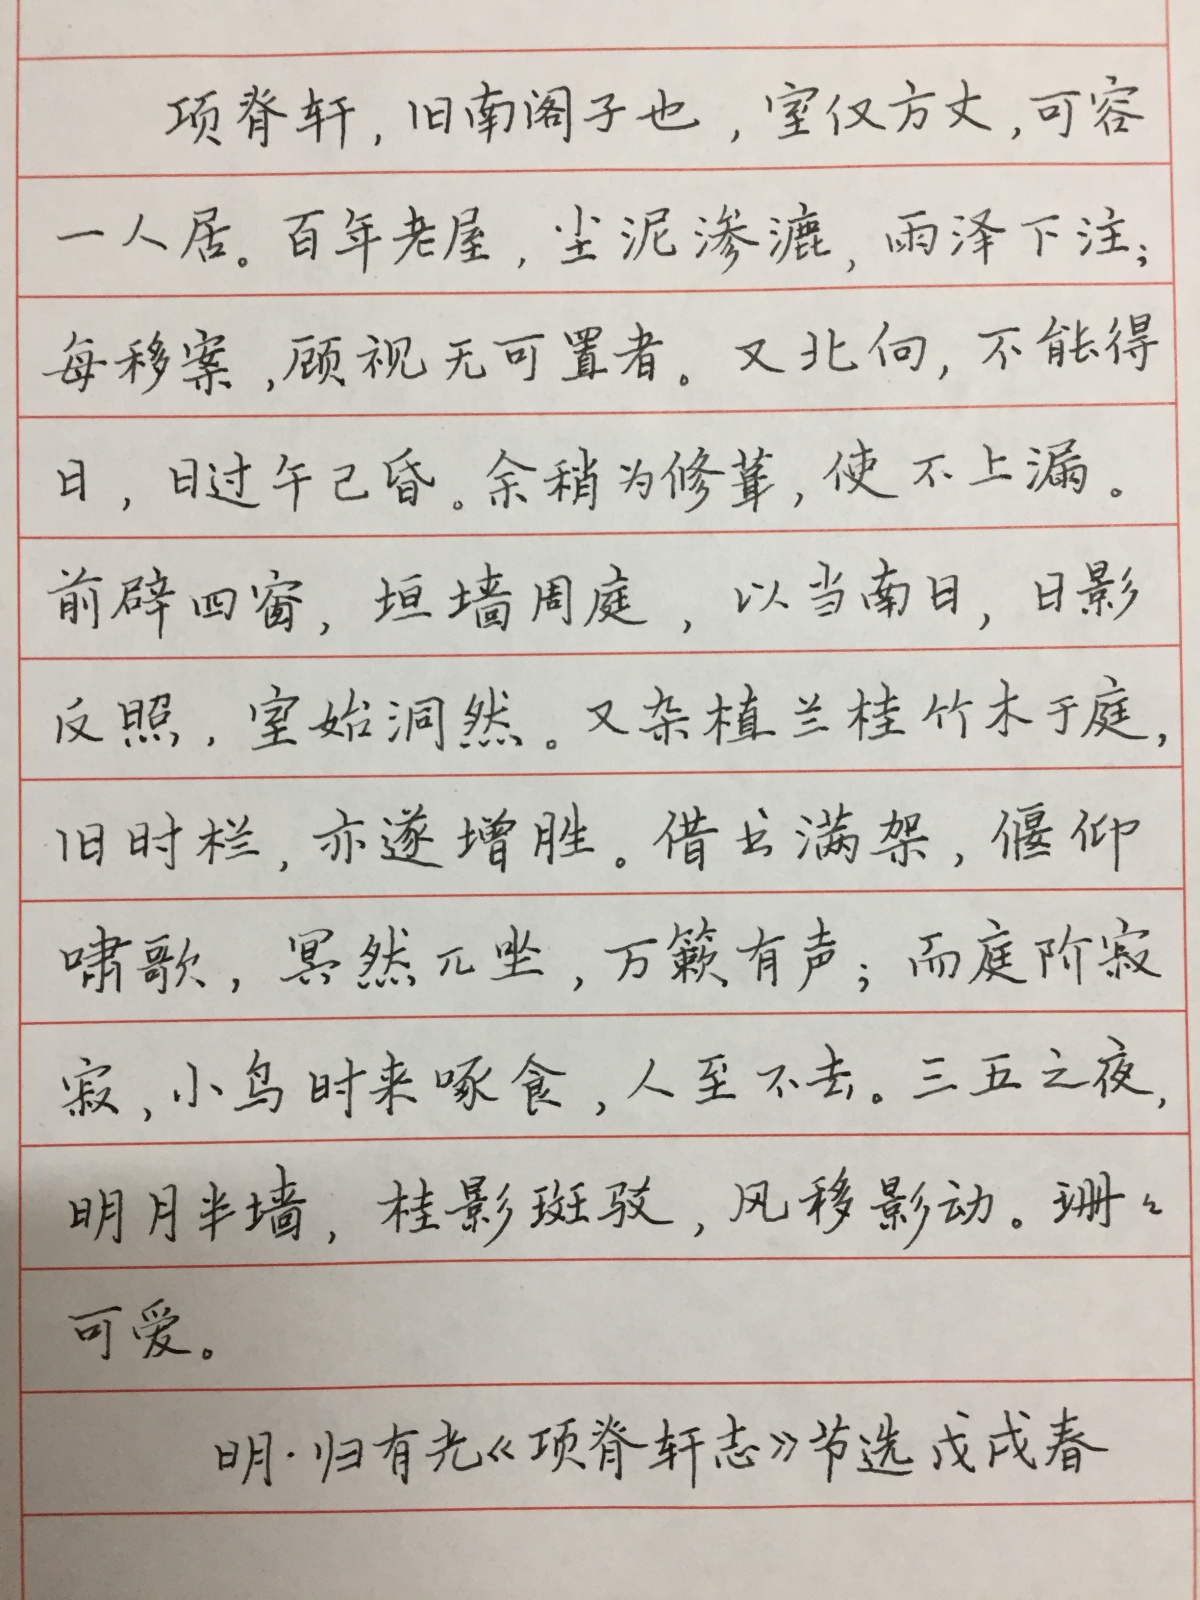 项脊轩，旧南阁子也，室仅方丈，可容
一人居。百年老屋，尘泥渗漉，雨泽下注；
每移案，顾视无可置者。又北向，不能得
日，日过午已昏。余稍为修葺，使不上漏。
前辟四窗，垣墙周庭，以当南日，日影
反照，室始洞然。又杂植兰桂竹木于庭，
旧时栏，亦遂增胜。借书满架，偃仰
啸歌，冥然兀坐，万籁有声；而庭阶寂
寂，小鸟时来啄食，人至不去。三五之夜，
明月半墙，桂影斑驳，风移影动。珊々
可爱。
明·归有光《项脊轩志》节选戊戌春